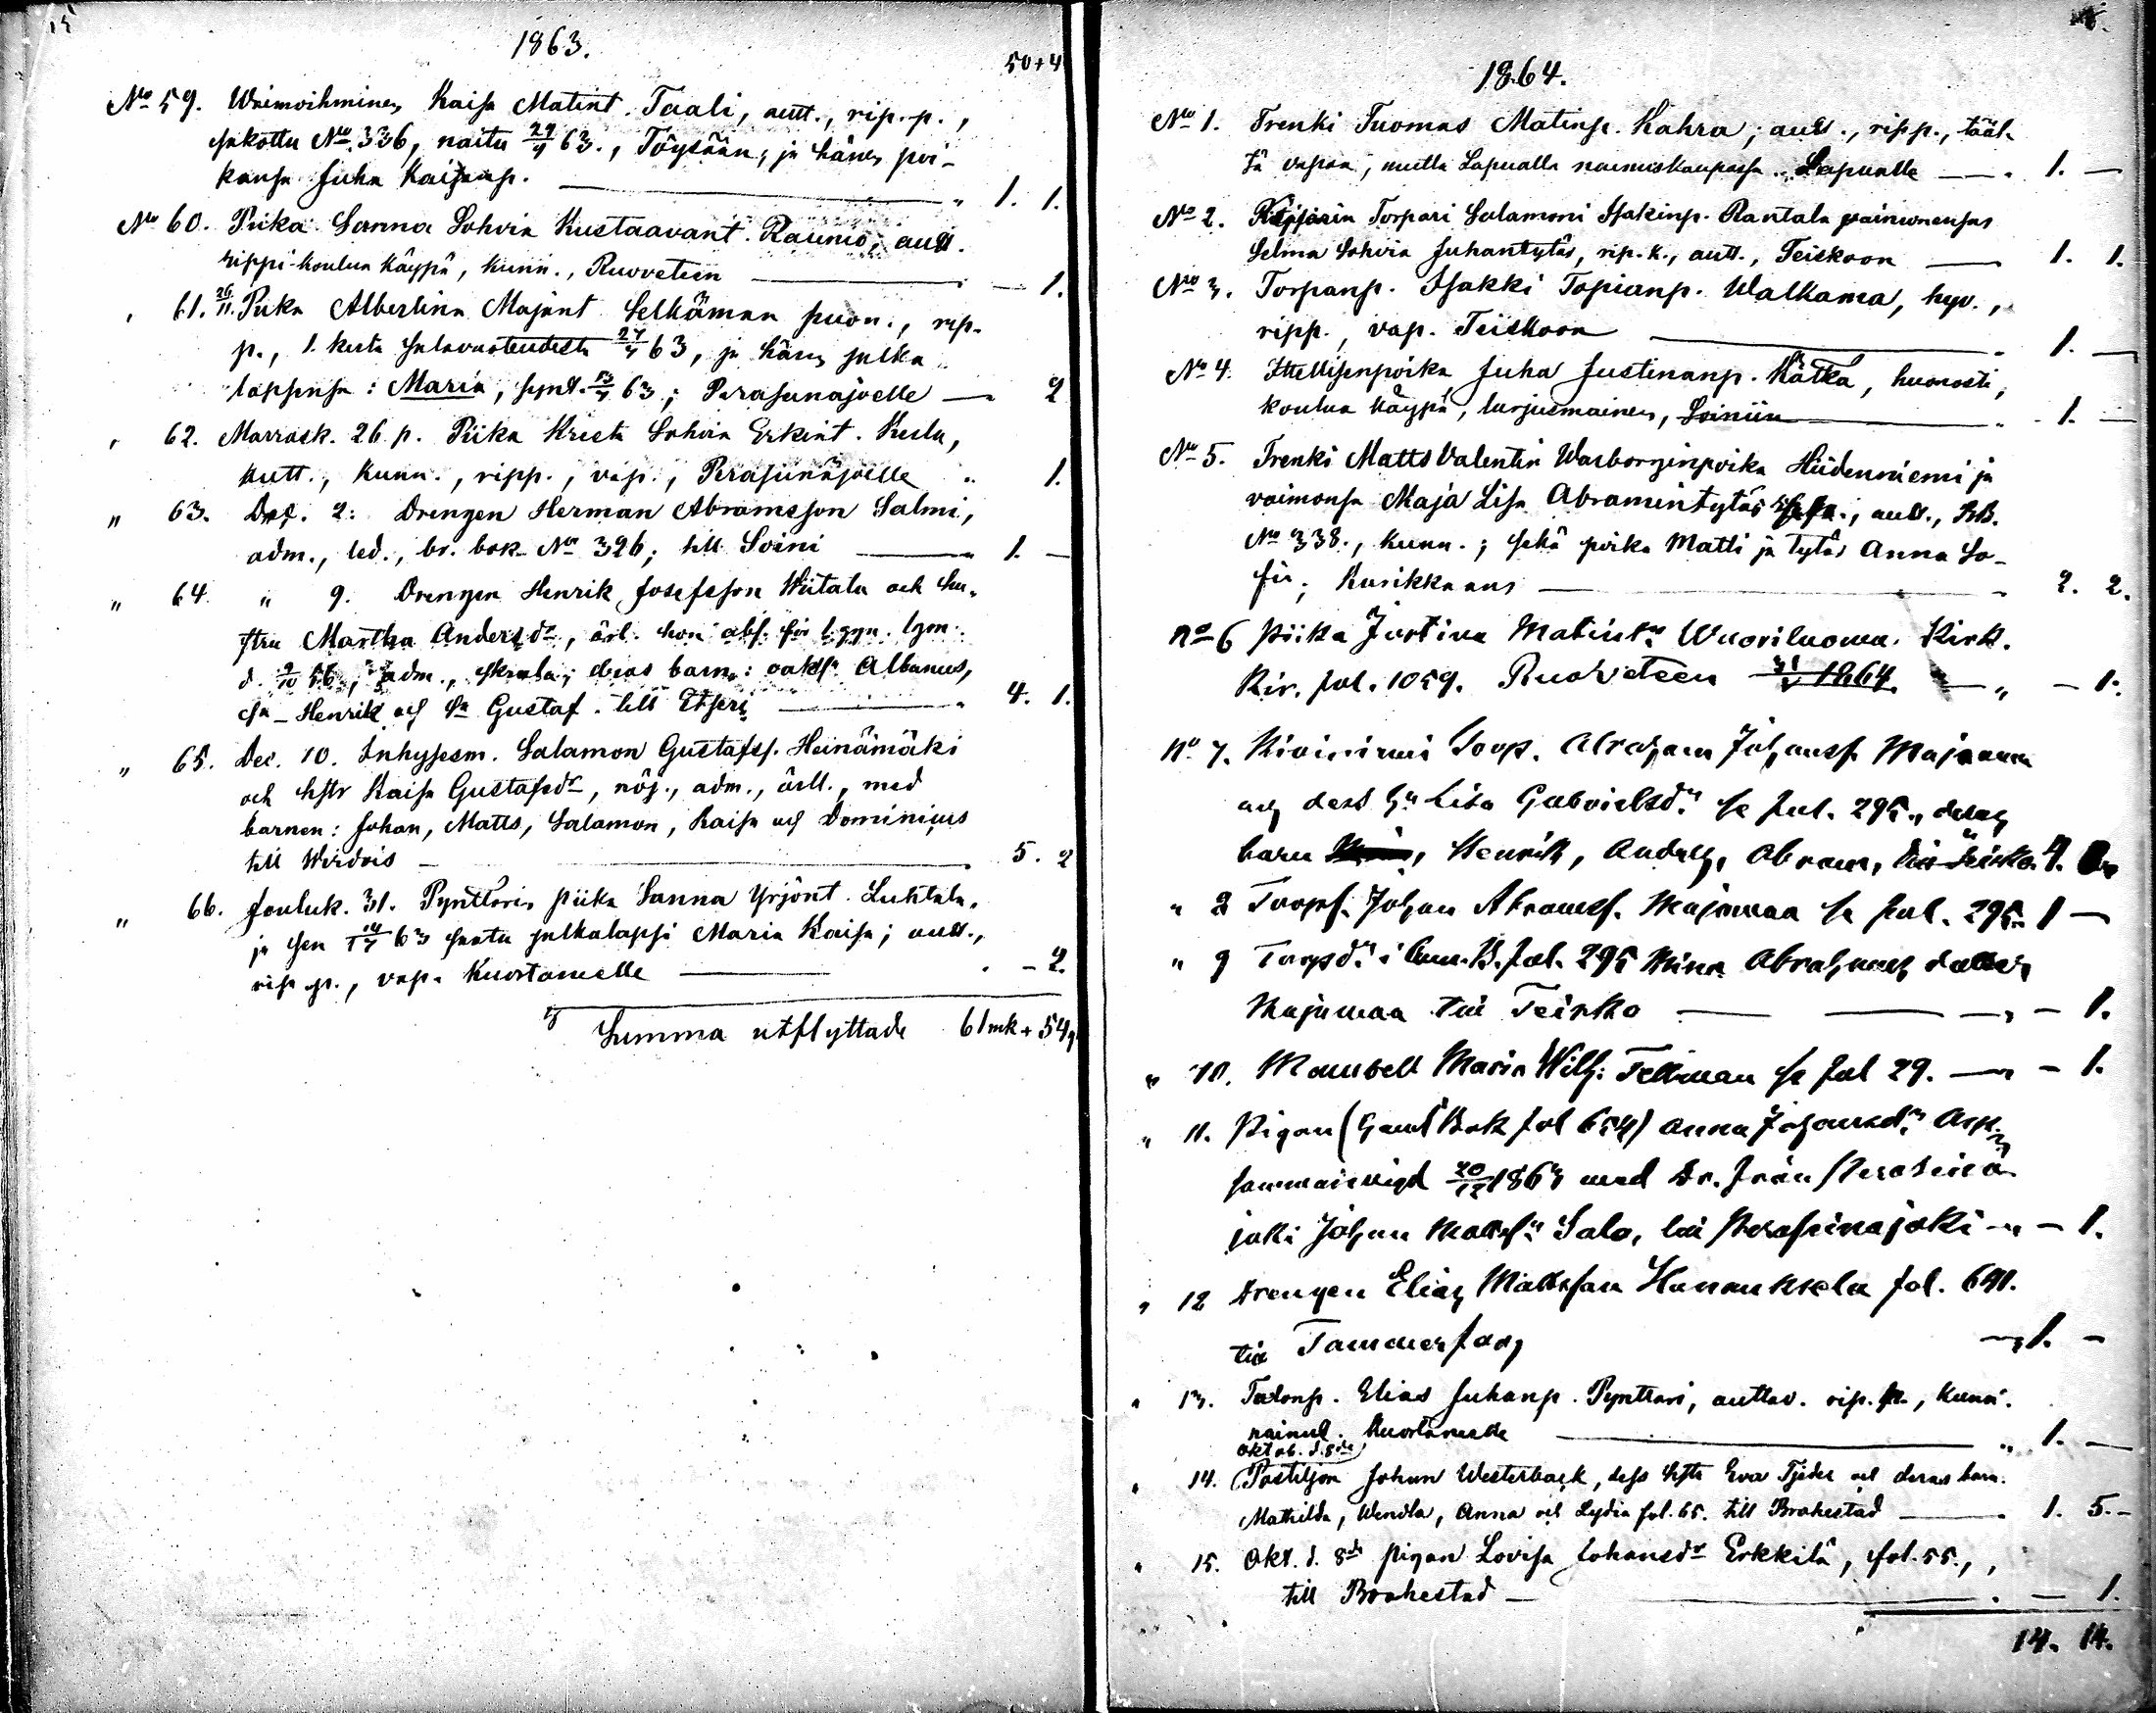 15
1863.
50+4
No 59. Waimoihminen Kaisa Matint. Taali, autt., rip.p.,
No. 336, naitu 63., Töysään; ja hänen poi-
kansa Juha Kaisanp. 1. 1.
No 60. Piika Sanna Sohvia Kustaavant. Raunio, autt.
rippi-koulua käypä, kunn., Ruoveteen — 1.
61. 26/11. Piika Albertina Majant Selkämän puon., rip.
p., 1. kerta salavuoteudesta 63, ja hänen
lapsensa: Maria, synt. 63; Peräseinäjoelle — 2
62. Marrask. 26 p. Piika Krista Sohvia Erkint. Kesla,
autt., kunn., ripp., vap., Peräseinäjoelle 1.
" 63. Dec. 2: Drengen Herman Abramsson Salmi,
adm., led., br. bok No 326; till Soini — 1. —
" 64 " 9. Drengen Henrik Josefsson Wiitala och hu-
stru Martha Andersdr, ärl. hon abs. för
d. 56, adm., deras barn: Albanus,
Henrik och Gustaf. till Etseri — 4. 1.
" 65. Dec. 10. Inhysesm. Salamon Gustafss. Heinämäki
och hstr Kaisa Gustafsdr, nöj., adm., ärll., med
barnen: Johan, Matts, Salamon, Kaisa och Dominicus
till Wirdois — 5. 2
" 66. Jouluk. 31. Pynttärin piika Sanna Yrjönt. Luhtala,
ja sen 63 lapsi Maria Kaisa; autt.,
rip.p., vap. Kuortaneelle — - 2.
Summa utflyttade 61 mk + 54
1864.
No 1. Trenki Tuomas Matinp. Kahra; autt., ripp., tääl-
tä vapaa, mutta Lapualla naimiskaupassa. Lapualle — 1. —
No 2. Torpari Salamoni Isakinp. Rantala vaimonensa
Selma Sohvia Juhantytär, rip.k., autt., Teiskoon — 1. 1.
No 3. Torpanp. Isakki Topianp. Walkama, hyv.,
ripp., vap. Teiskoon — 1. —
No 4. Itsellisenpoika Juha Justinanp. Kätkä, huonosti,
koulua käypä, Soiniin — 1. —
No 5. Trenki Matts Valentin Warborginpoika Hiidenniemi ja
vaimonsa Maja Lisa Abramintytär, autt., RB.
No 338., kunn.; sekä poika Matti ja tytär Anna So-
fia; Kurikkaan — 2. 2.
No 6 Piika Justina Matintr Wuoriluoma. Kirk.
Kir. fol. 1059. Ruoveteen 1864. — - 1.
No 7. Kiviniemi Torp. Abraham Johanss. Majamaa
och dess hu Lisa Gabrielsdr se fol. 295., deras
barn Henrik, Anders, Abram, till Teisko. 4.
" 8 Torps. Johan Abramss. Majamaa se fol. 295. 1 —
" 9 Torpsdr i fol. 295 Mina Abrahams dotter
Majamaa till Teisko — - 1.
" 10. Mamsell Maria Wilh: Tellman se fol 29. — - 1.
" 11. Pigan (Gaml Bok fol 654) Anna Johansdr Asp
sammanvigd 20/12 1863 med Dr. från Peräseinä-
joki Johan Mattss. Salo, till Peräseinäjoki — - 1.
" 12 Drengen Elias Mattsson Hanuksela fol. 691.
till Tammerfors — 1. -
" 13. Talonp. Elias Juhanp. Pynttäri, auttav. rip.p., kunn.
nainut. Kuortaneelle — 1. —
Oktob. d. 8de
" 14. Postiljon Johan Westerback, dess hstr Eva Tjäder och deras barn:
Mathilda, Wendla, Anna och Lydia fol. 65. till Brahestad — 1. 5. -
" 15. Okt. d. 8de pigan Lovisa Johansdr Erkkilä, fol. 55.,
till Brahestad — — 1.
14. 14.